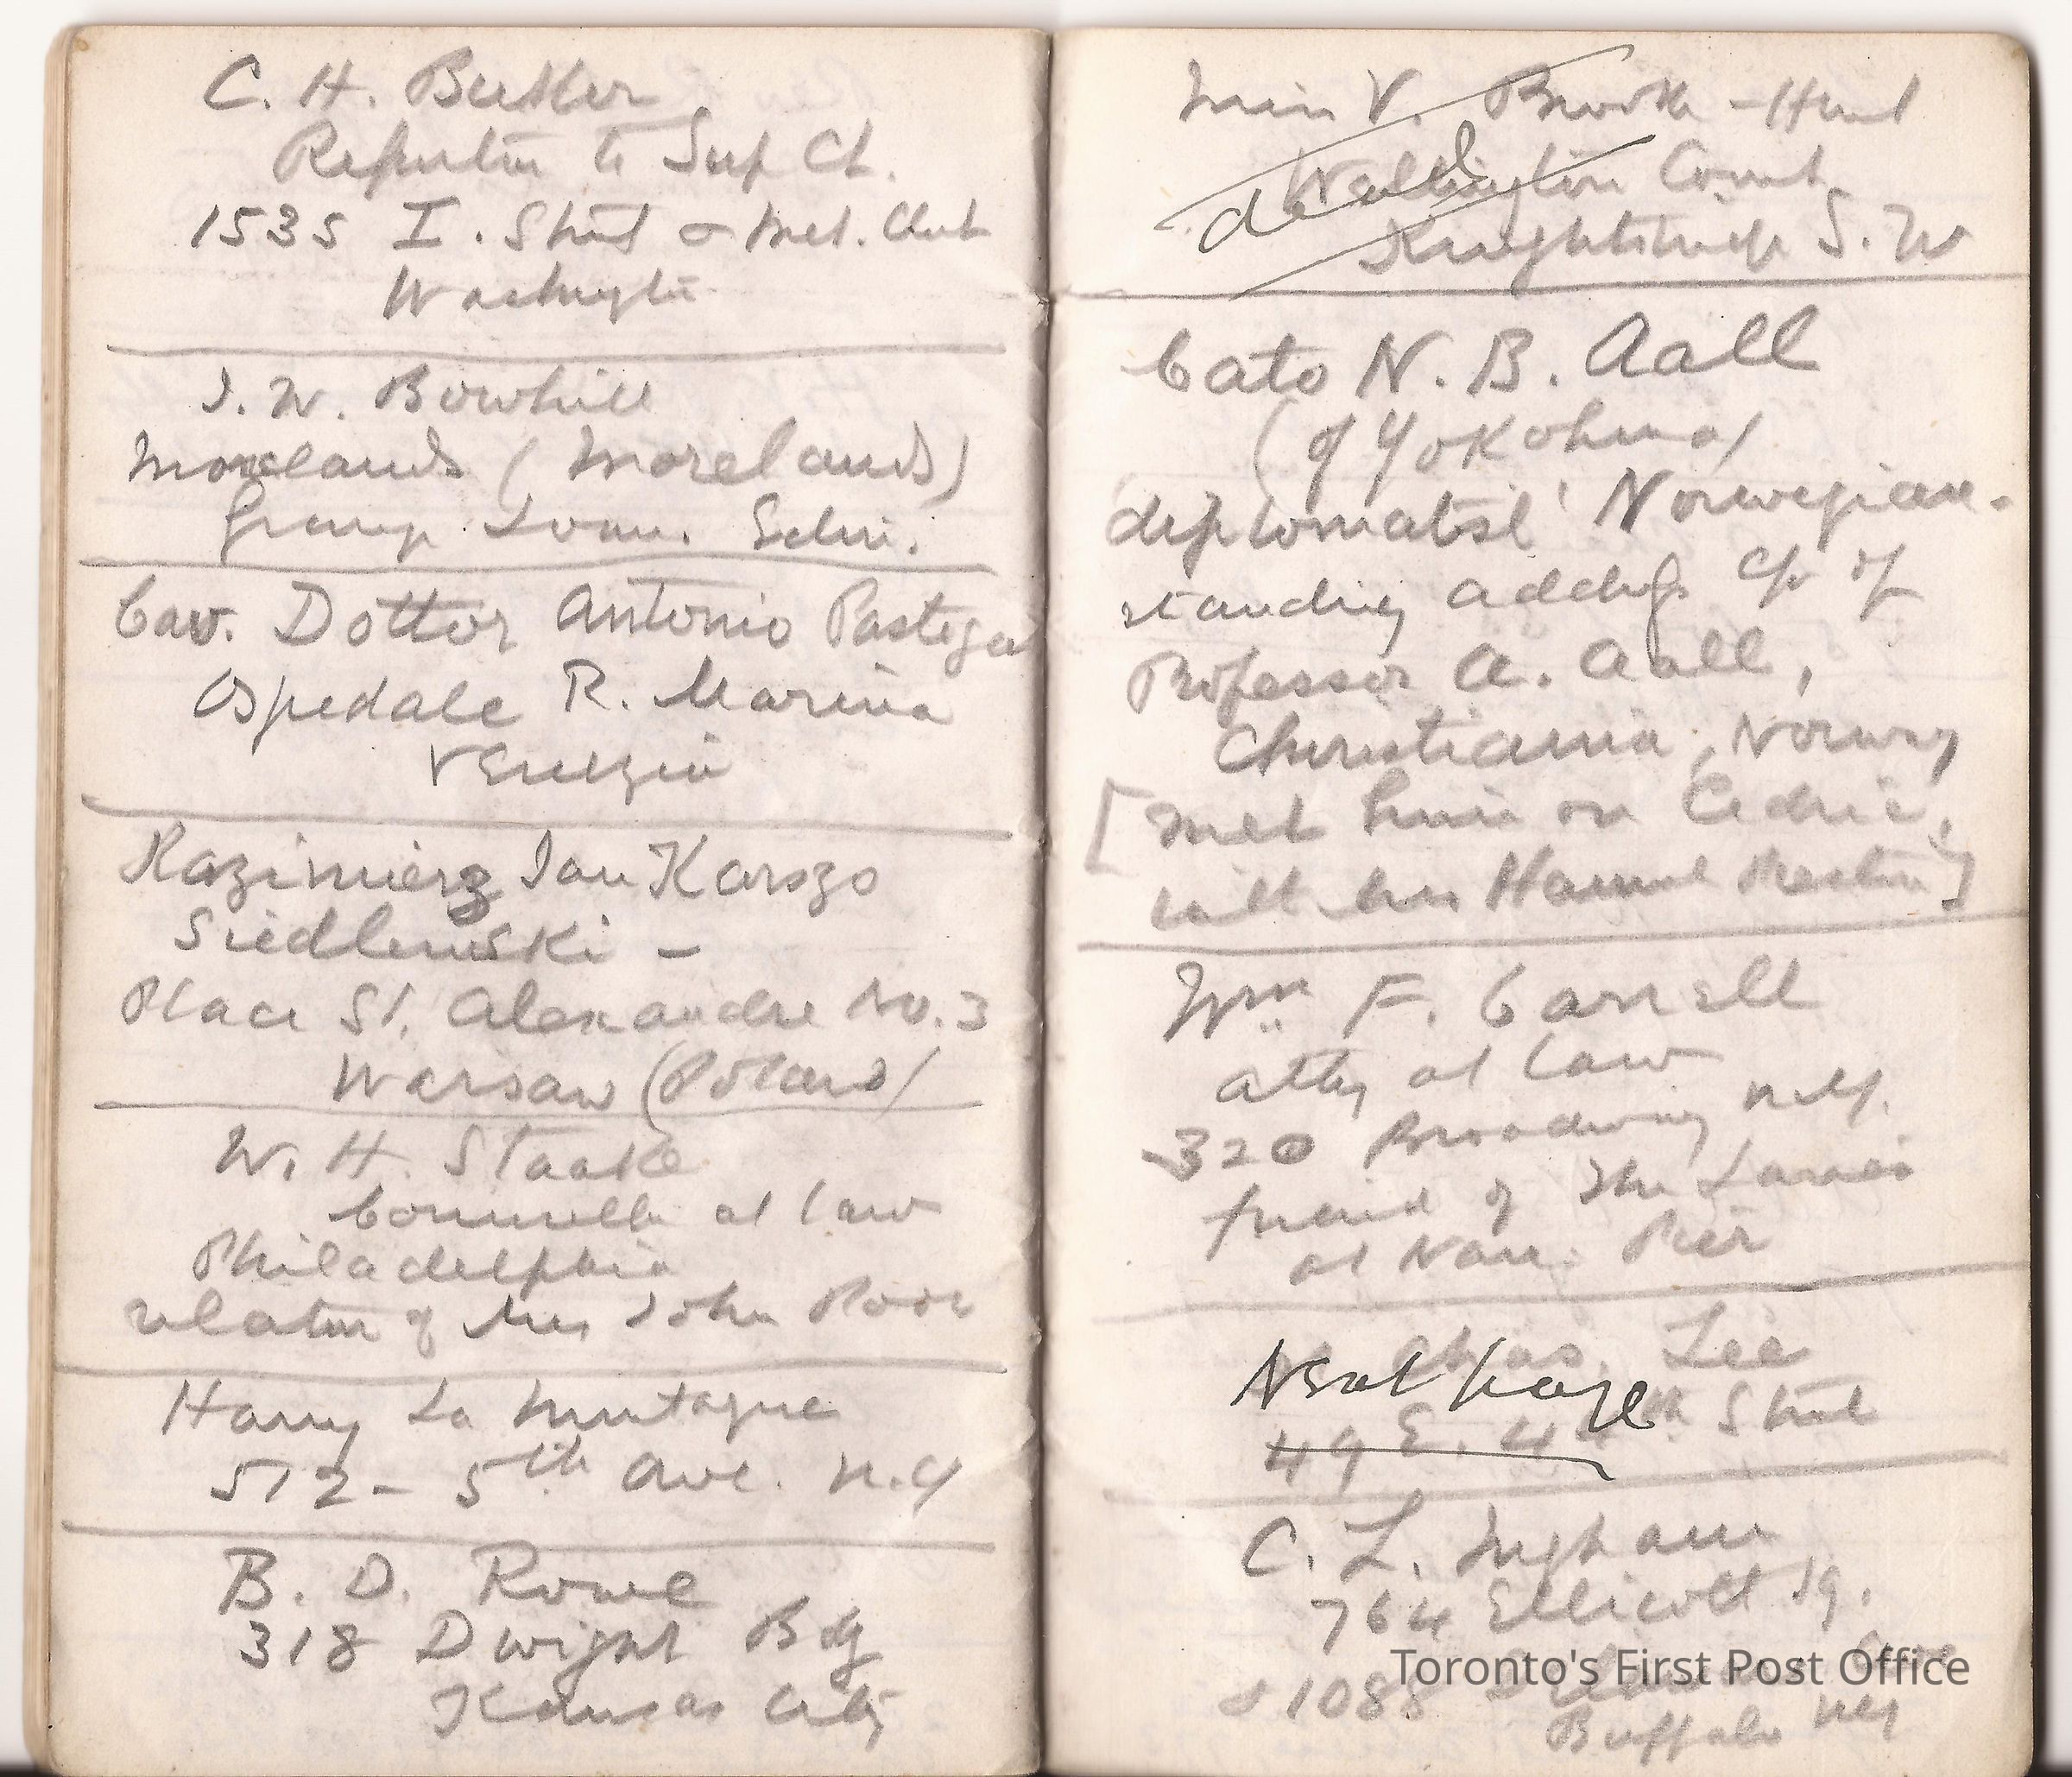 C. H. Butler
Reporter to Sup Ct.
1535 I. Street or Met. Club
Washington
J. W. Bowhill
Morelands (Morelands)
Grange Loan. Edin.
Cav. Dottor Antonio Pastega
Ospedale R. Marina
Venezia
Kazimierz Jan Karszo
Siedlewski –
Place St. Alexandre No. 3
Warsaw (Poland)
W. H. Staake
at law
Philadelphia
relation of Mrs John Poor
Harry La Montagne
572 – 5th Ave. N.Y
B. D. Rowe
318 Dwight Bdg
Kansas City
Miss V. Brooke-Hunt
dead
Wellington Court
Knightsbridge S. W
Cato N. B. Aall
(of Yokohma)
diplomatist Norwegian.
standing address c/o of
Professor A. Aall,
Christiania, Norway
[met him on Cedric,
with]
Wm F. Carrell
atty at law
320 Broadway N.Y.
friend of the
at Narr. Pier
Chas. Lee
Next page
49 E. Street
C. L. Ingham
764 Ellicott Sq.
1088
Buffalo NY
Toronto's First Post Office